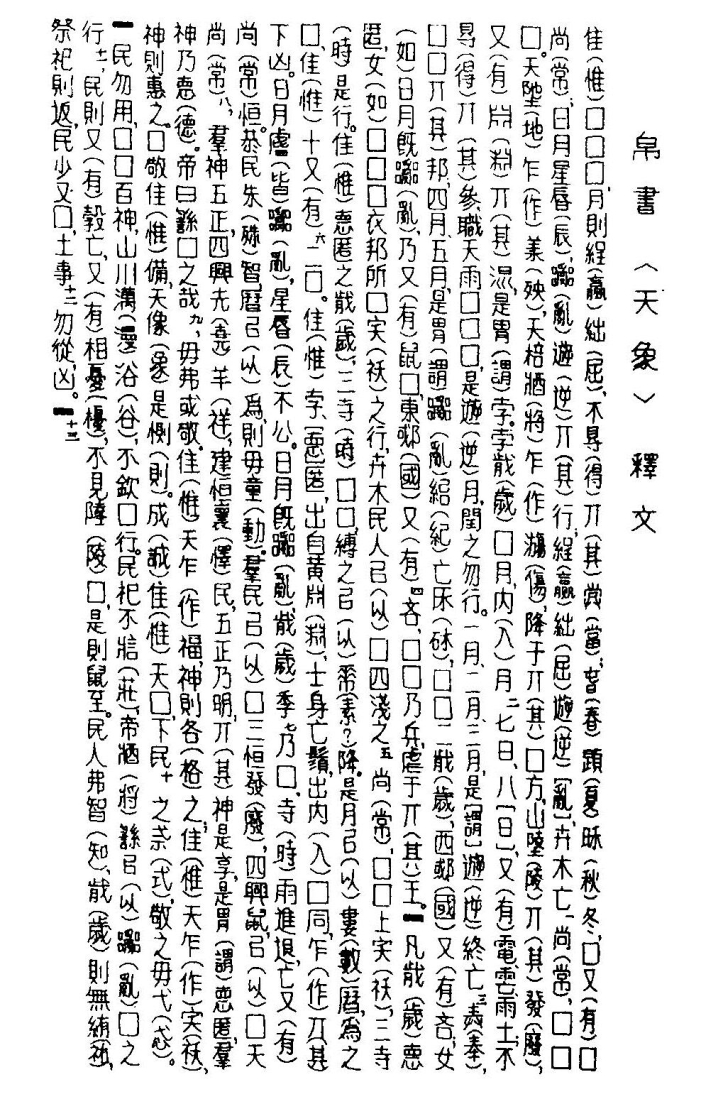 帛書〈天象〉釋文
隹(惟)□□□月,則絟(贏)絀(屈),不㝵(得)丌(其)尚(當);旾(春)顕(夏)昧(秋)冬,□又(有)□
尚(常);日月星唇(辰),𤔔(亂)遊(逆)丌(其)行,絟(贏)絀(屈)遊(逆)[亂],卉木亡一尚(常),□□
□,天陞(地)乍(作)羕(殃),天棓𤖅(將)乍(作)瀉(傷),降于丌(其)□方,山陵(陵)丌(其)發(廢),
又(有)淵(淵)丌(其)涅,是胃(謂)孛。孛歲(歲)□月,內(入)月二七日,八[日],又(有)電雲雨土,不
㝵(得)丌(其)參職,天雨□□□,是遊(逆)月,閏之勿行。一月、二月、三月,是[謂]遊(逆)終,亡三奉(奉),
□□丌(其)邦,四月、五月,是胃(謂)𤔔(亂)紀(紀),亡𣏟(砅),□□二歲(歲),西𨛭(國)又(有)吝,女
(如)日月既𤔔(亂),乃又(有)鼠□,東𨛭(國)又(有)四吝,□□乃兵,虐于丌(其)王。▬凡歲(歲)悳
匿,女(如)□□□衣邦所□実(祅)之行,卉木民人㠯(以)□四淺之五尚(常),□□上実(祅),三寺
(時)是行。隹(惟)悳匿之歲(歲),三寺(時)□□,縛之㠯(以)希(素?)降,是月㠯(以)婁(數)曆爲之
□,隹(惟)十又(有)六二□。隹(惟)孛,悳匿,出自黃淵(淵),土身亡鬚,出內(入)□同,乍(作)丌(其)
下凶。日月虘(皆)𤔔(亂),星唇(辰)不公。日月既𤔔(亂),歲(歲)季七乃□,寺(時)雨進退,亡又(有)
尚(常)恒。恭民朱(殊)智,曆㠯(以)爲,則毋童(動),羣民㠯(以)□三恒發(廢),四興鼠,㠯(以)□天
尚(常)八,羣神五正,四興无(堯)羊(祥),建恒褱(懌)民,五正乃明,丌(其)神是享,是胃(謂)悳匿,羣
神乃悳(德)。帝曰:繇□之哉九,毋弗或敬。隹(惟)天乍(作)福,神則各(格)之;隹(惟)天乍(作)実(祅),
神則惠之。□敬隹(惟)備,天像(象)是惻(則)。成(誠)隹(惟)天□,下民十之祘(式),敬之毋弋(忒)。
▬民勿用,□□百神,山川澫(漫)浴(谷),不欽□行,民祀不𤖅(莊),帝𤖅(將)繇㠯(以)𤔔(亂)□之
行十一,民則又(有)穀,亡又(有)相憂(擾),不見陵(陵)□,是則鼠至。民人弗智(知),歲(歲)則無
祭祀則返,民少又□,土事十二勿從,凶。▬十三